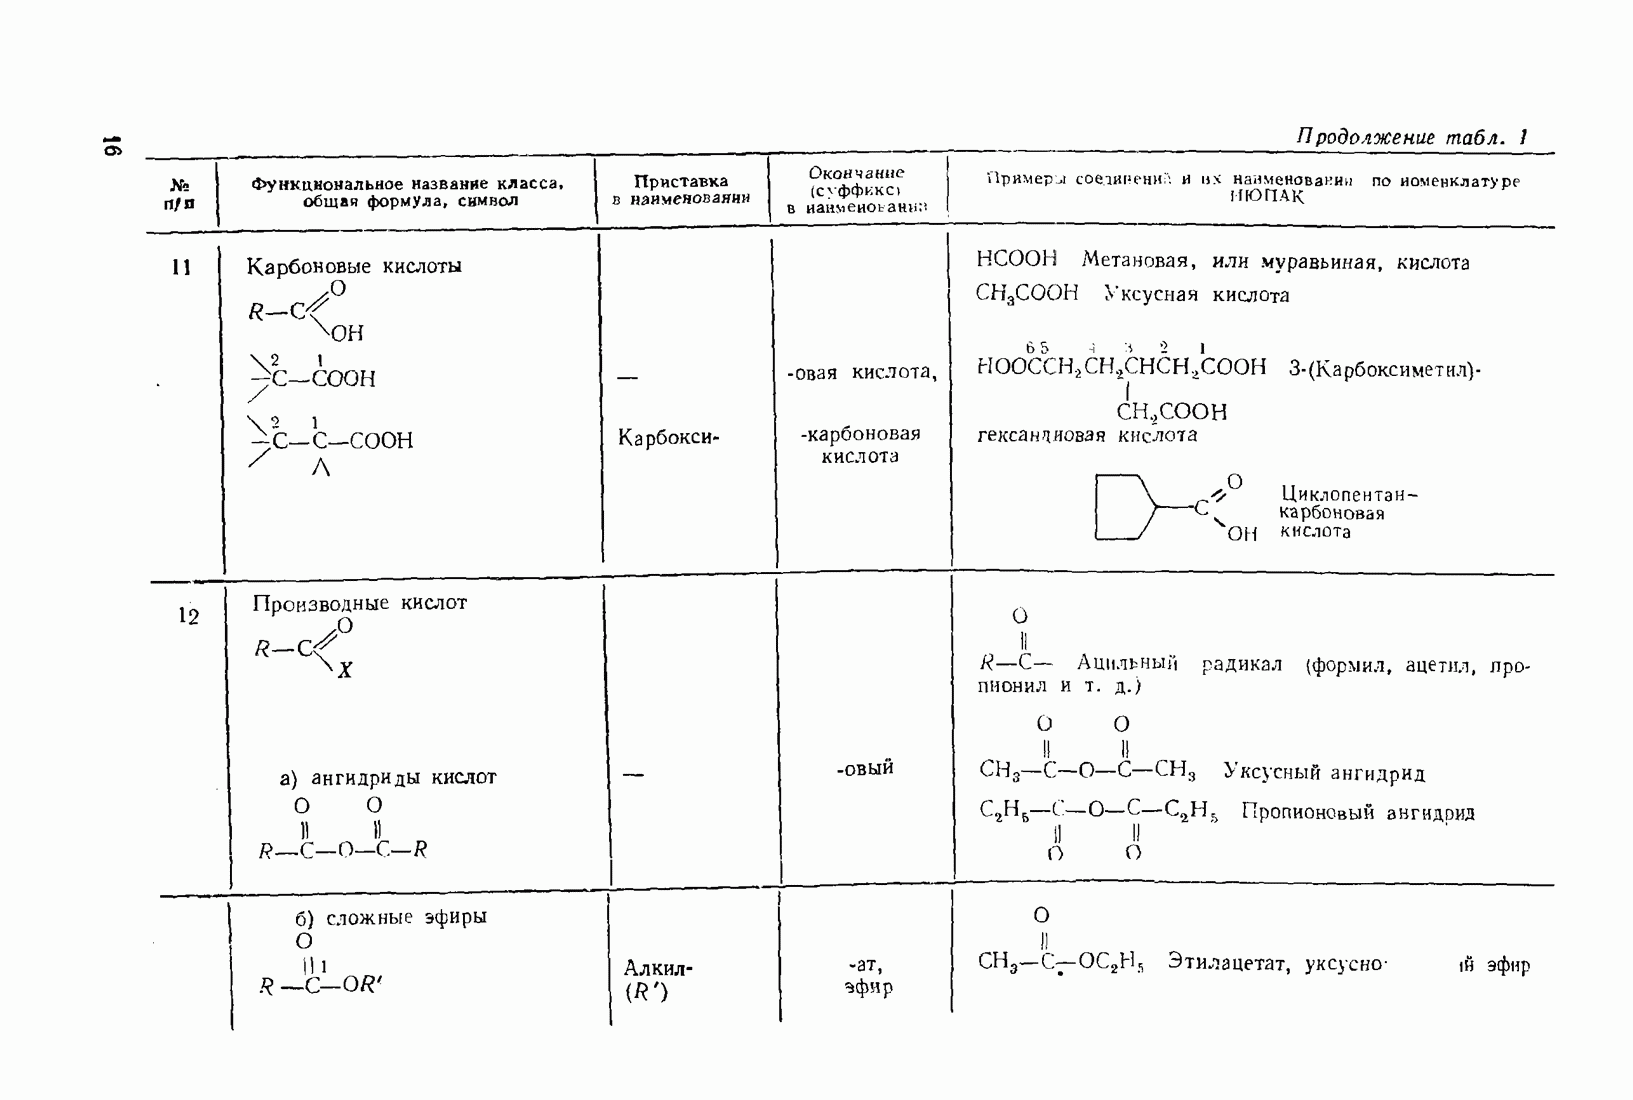 16
Продолжение табл. 1
№ п/п
Функциональное название класса, общая формула, символ
Приставка в наименовании
Окончание (суффикс) в наименовании
Примеры соединений и их наименовании по номенклатуре ИЮПАК
11
Карбоновые кислоты
O
R—C
OH
2 1
C—COOH
2 1
C—C—COOH
—
Карбокси-
-овая кислота,
-карбоновая
кислота
HCOOH Метановая, или муравьиная, кислота
CH₃COOH Уксусная кислота
6 5 4 3 2 1
HOOCCH₂CH₂CHCH₂COOH 3-(Карбоксиметил)-
CH₂COOH
гександиовая кислота
O
C
OH
Циклопентан-
карбоновая
кислота
12
Производные кислот
O
R—C
X
O
||
R—C— Ацильный радикал (формил, ацетил, про-
пионил и т. д.)
а) ангидриды кислот
O O
|| ||
R—C—O—C—R
—
-овый
O O
|| ||
CH₃—C—O—C—CH₃ Уксусный ангидрид
C₂H₅—C—O—C—C₂H₅ Пропионовый ангидрид
|| ||
O O
б) сложные эфиры
O
|| 1
R—C—OR′
Алкил-
(R′)
-ат,
эфир
O
||
CH₃—C—OC₂H₅ Этилацетат, уксусно- й эфир